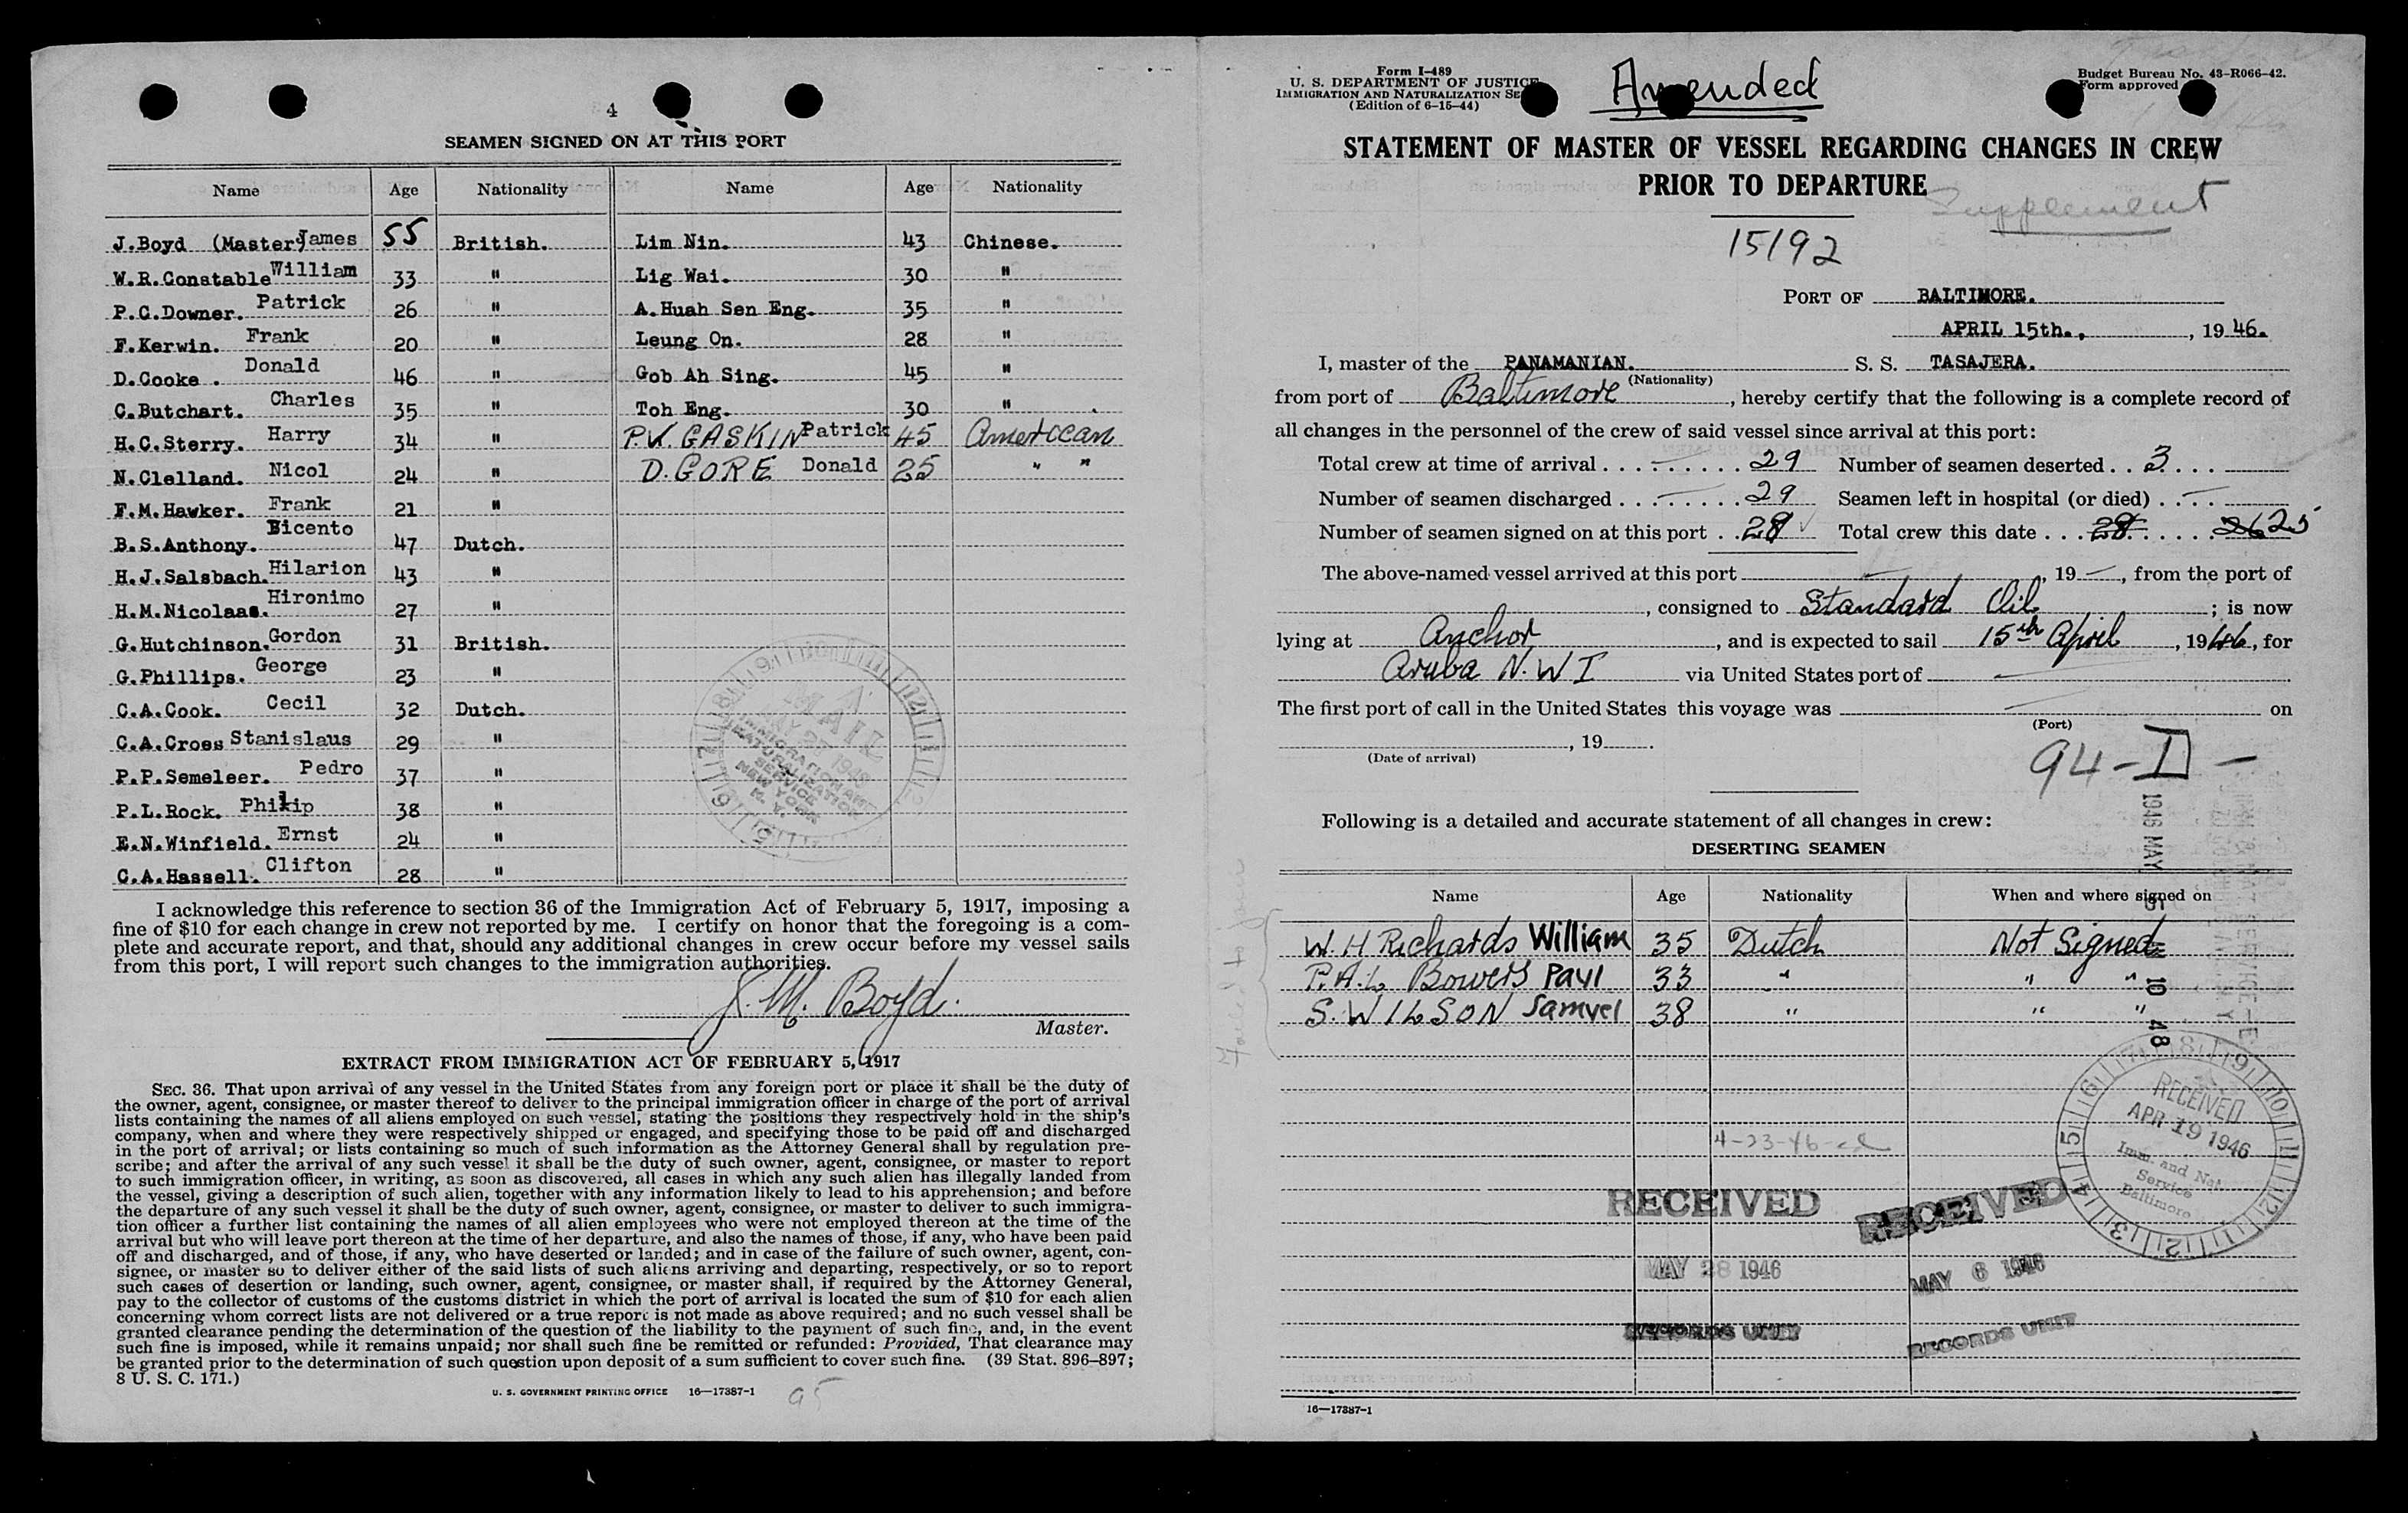 4
SEAMEN SIGNED ON AT THIS PORT
Name Age Nationality Name Age Nationality
J.Boyd (Master) James 55 British. Lim Nin. 43 Chinese.
W.R.Constable William 33 " Lig Wai. 30 "
P.C.Downer. Patrick 26 " A.Huah Sen Eng. 35 "
F.Kerwin. Frank 20 " Leung On. 28 "
D.Cooke . Donald 46 " Gob Ah Sing. 45 "
C.Butchart. Charles 35 " Toh Eng. 30 "
H.C.Sterry. Harry 34 " P.V. GASKIN Patrick 45 American
N.Clelland. Nicol 24 " D. GORE Donald 25 " "
F.M.Hawker. Frank 21 "
B.S.Anthony. Bicento 47 Dutch.
H.J.Salsbach. Hilarion 43 "
H.M.Nicolaas. Hironimo 27 "
G.Hutchinson. Gordon 31 British.
G.Phillips. George 23 "
C.A.Cook. Cecil 32 Dutch.
C.A.Cross Stanislaus 29 "
P.P.Semeleer. Pedro 37 "
P.L.Rock. Philip 38 "
E.N.Winfield. Ernst 24 "
C.A.Hassell. Clifton 28 "
MAIL
1946
IMMIGRATION AND
NATURALIZATION
SERVICE
NEW YORK
N. Y.
I acknowledge this reference to section 36 of the Immigration Act of February 5, 1917, imposing a
fine of $10 for each change in crew not reported by me. I certify on honor that the foregoing is a com-
plete and accurate report, and that, should any additional changes in crew occur before my vessel sails
from this port, I will report such changes to the immigration authorities.
J. M. Boyd.
Master.
EXTRACT FROM IMMIGRATION ACT OF FEBRUARY 5, 1917
SEC. 36. That upon arrival of any vessel in the United States from any foreign port or place it shall be the duty of
the owner, agent, consignee, or master thereof to deliver to the principal immigration officer in charge of the port of arrival
lists containing the names of all aliens employed on such vessel, stating the positions they respectively hold in the ship's
company, when and where they were respectively shipped or engaged, and specifying those to be paid off and discharged
in the port of arrival; or lists containing so much of such information as the Attorney General shall by regulation pre-
scribe; and after the arrival of any such vessel it shall be the duty of such owner, agent, consignee, or master to report
to such immigration officer, in writing, as soon as discovered, all cases in which any such alien has illegally landed from
the vessel, giving a description of such alien, together with any information likely to lead to his apprehension; and before
the departure of any such vessel it shall be the duty of such owner, agent, consignee, or master to deliver to such immigra-
tion officer a further list containing the names of all alien employees who were not employed thereon at the time of the
arrival but who will leave port thereon at the time of her departure, and also the names of those, if any, who have been paid
off and discharged, and of those, if any, who have deserted or landed; and in case of the failure of such owner, agent, con-
signee, or master so to deliver either of the said lists of such aliens arriving and departing, respectively, or so to report
such cases of desertion or landing, such owner, agent, consignee, or master shall, if required by the Attorney General,
pay to the collector of customs of the customs district in which the port of arrival is located the sum of $10 for each alien
concerning whom correct lists are not delivered or a true report is not made as above required; and no such vessel shall be
granted clearance pending the determination of the question of the liability to the payment of such fine, and, in the event
such fine is imposed, while it remains unpaid; nor shall such fine be remitted or refunded: Provided, That clearance may
be granted prior to the determination of such question upon deposit of a sum sufficient to cover such fine. (39 Stat. 896–897;
8 U. S. C. 171.)
U. S. GOVERNMENT PRINTING OFFICE 16—17387-1
95
Form I-489
U. S. DEPARTMENT OF JUSTICE
IMMIGRATION AND NATURALIZATION SE
(Edition of 6-15-44)
Amended
Budget Bureau No. 43-R066-42.
Form approved
STATEMENT OF MASTER OF VESSEL REGARDING CHANGES IN CREW
PRIOR TO DEPARTURE
Supplement
15192
PORT OF BALTIMORE.
APRIL 15th., , 1946.
I, master of the PANAMANIAN. S. S. TASAJERA.
(Nationality)
from port of Baltimore , hereby certify that the following is a complete record of
all changes in the personnel of the crew of said vessel since arrival at this port:
Total crew at time of arrival . . . . . . . . . 29 Number of seamen deserted . . 3 . . .
Number of seamen discharged . . . . . . . . 29 Seamen left in hospital (or died) . . —
Number of seamen signed on at this port . . 28 ✓ Total crew this date . . . 28 . . . . . . 26 25
The above-named vessel arrived at this port — , 19 — , from the port of
, consigned to Standard Oil ; is now
lying at Anchor , and is expected to sail 15th April , 1946, for
Aruba N.W I via United States port of —
The first port of call in the United States this voyage was — on
(Port)
, 19 .
(Date of arrival)
94 - D -
Following is a detailed and accurate statement of all changes in crew:
DESERTING SEAMEN
Name Age Nationality When and where signed on
W. H Richards William 35 Dutch Not Signed
P.A.L Bowers Paul 33 " " "
S. WILSON Samuel 38 " " "
Failed to join
1946 MAY 10 48
4-23-46
RECEIVED
APR 19 1946
Imm. and Nat.
Service
Baltimore
RECEIVED
MAY 28 1946
RECORDS UNIT
RECEIVED
MAY 6 1946
RECORDS UNIT
16—17387-1